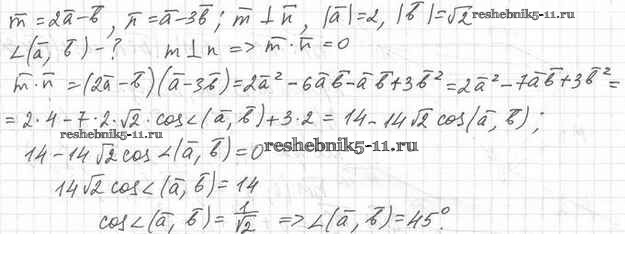 m̅ = 2a̅ - b̅, n̅ = a̅ - 3b̅; m̅ ⊥ n̅, |a̅| = 2, |b̅| = √2 reshebnik5-11.ru
∠(a̅, b̅) - ? m⊥n => m̅ · n̅ = 0
m̅ · n̅ = (2a̅ - b̅)(a̅ - 3b̅) = 2a̅² - 6a̅b̅ - a̅b̅ + 3b̅² = 2a̅² - 7a̅b̅ + 3b̅² =
= 2·4 - 7·2·√2·cos∠(a̅, b̅) + 3·2 = 14 - 14√2 cos(a̅, b̅);
reshebnik5-11.ru
14 - 14√2 cos∠(a̅, b̅) = 0 reshebnik5-11.ru
14√2 cos∠(a̅, b̅) = 14
cos∠(a̅, b̅) = 1/√2 => ∠(a̅, b̅) = 45°.